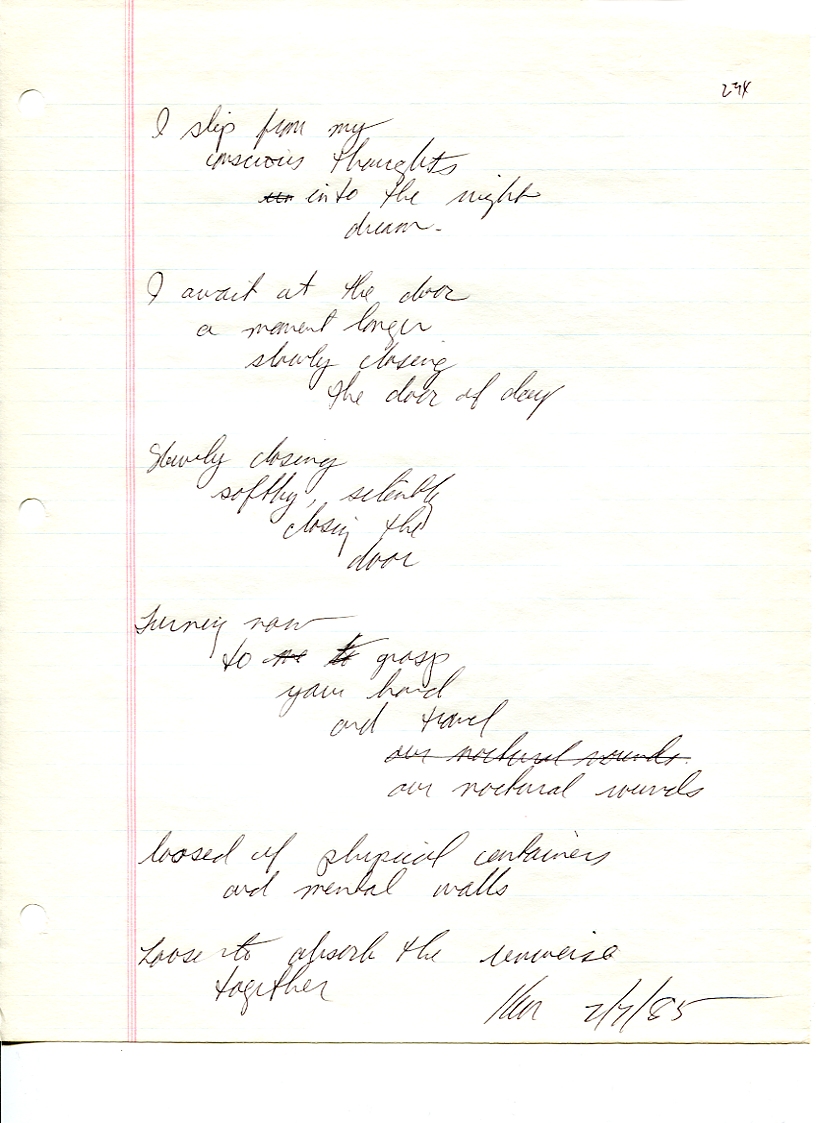 294
I slip from my
conscious thoughts
into the night
dream.
I await at the door
a moment longer
slowly closing
the door of day
Slowly closing
softly, silently
closing the
door
Turning now
to grasp
your hand
and travel
our noctural rounds
our noctural rounds
loosed of physical containers
and mental walls
Loose to absorb the universe
together
Ken 2/7/85